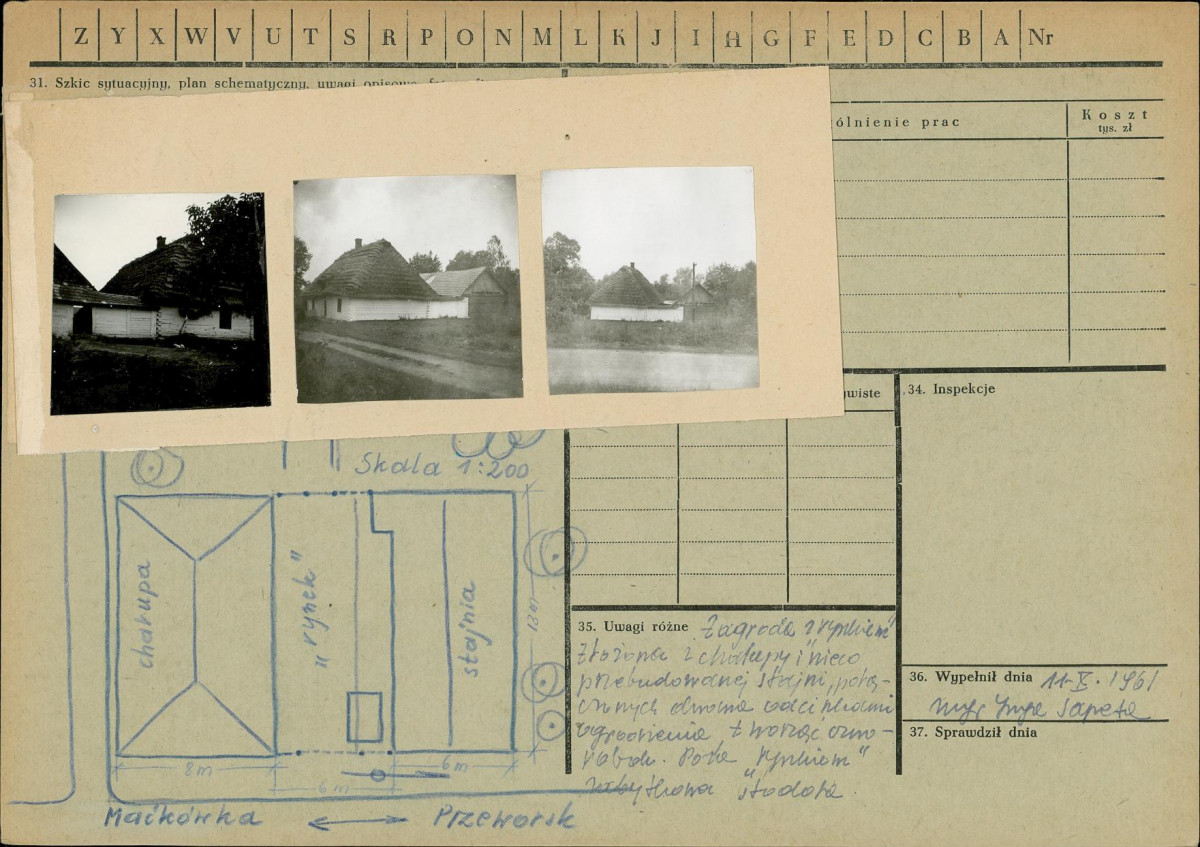 Z Y X W V U T S R P O N M L K J I H G F E D C B A Nr
31. Szkic sytuacyjny, plan schematyczny, uwagi opisowe,
ólnienie prac
Koszt
tys. zł
wiste
34. Inspekcje
Skala 1:200
chałupa
"rynek"
stajnia
12m
8m
6m
6m
Maćkówka Przeworsk
35. Uwagi różne Zagroda z "rynkiem"
złożona z chałupy i nieco
przebudowanej stajni, połą-
czonych dwoma odcinkami
ogrodzenia, tworząc czwo-
robok. Poza "rynkiem"
zabytkowa stodoła.
36. Wypełnił dnia 11-X-1961
mgr Sapeta
37. Sprawdził dnia